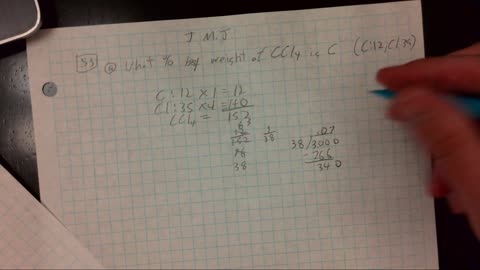 J M J
53 a What % by weight of CCl4 is C (C:12, Cl:35)
C : 12 × 1 = 12
Cl : 35 × 4 = 140
CCl4 = 152
38
3
38
.07
38/3000
- 266
340